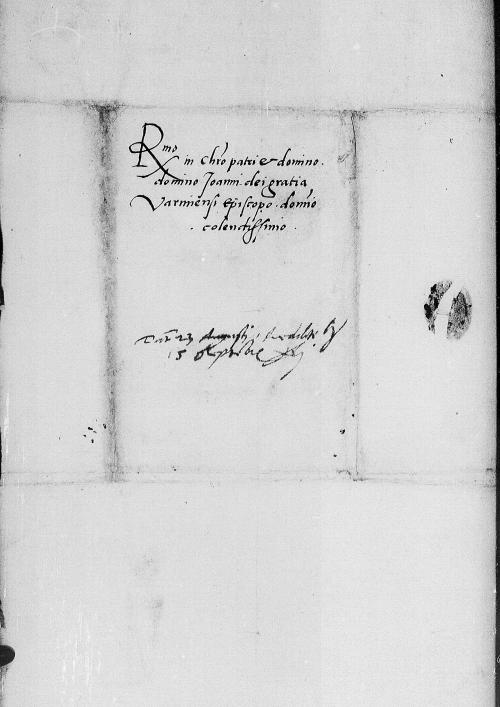 Rmo
in Chro patri et domino.
domino Joanni dei gratia
Varmiensi Episcopo. domino
. colendissimo .
Dat 23 Augusti
15